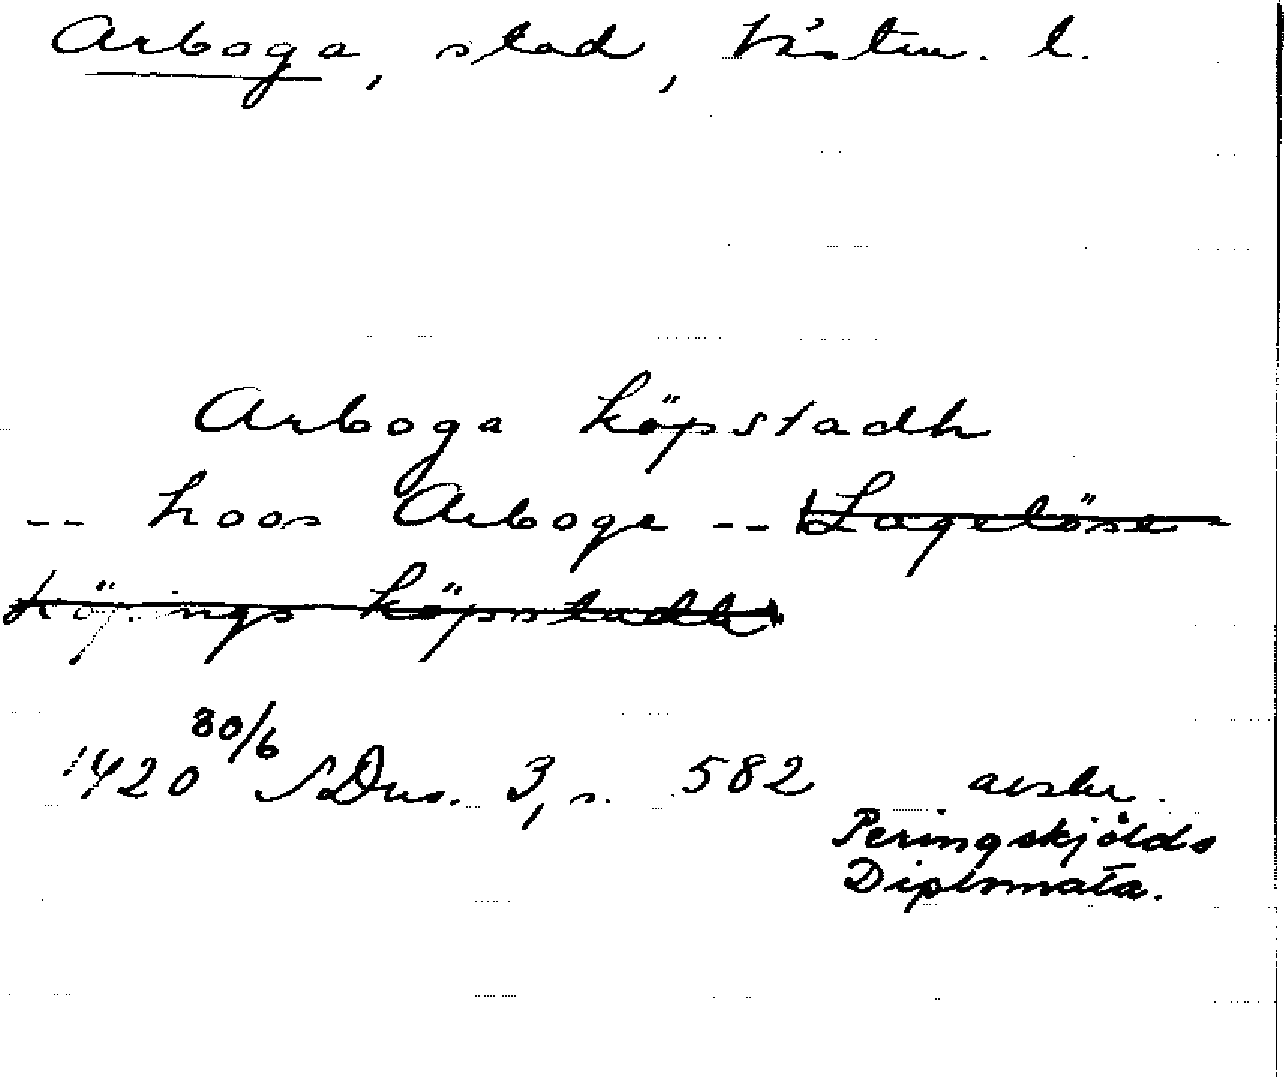 Arboga, stad, Västm. l.
Arboga köpstadh
-- hoos Arboge -- Lagelöse
köpings köpstadh
1420 30/6 SDns. 3, s. 582 avskr.
Peringskjölds
Diplomata.